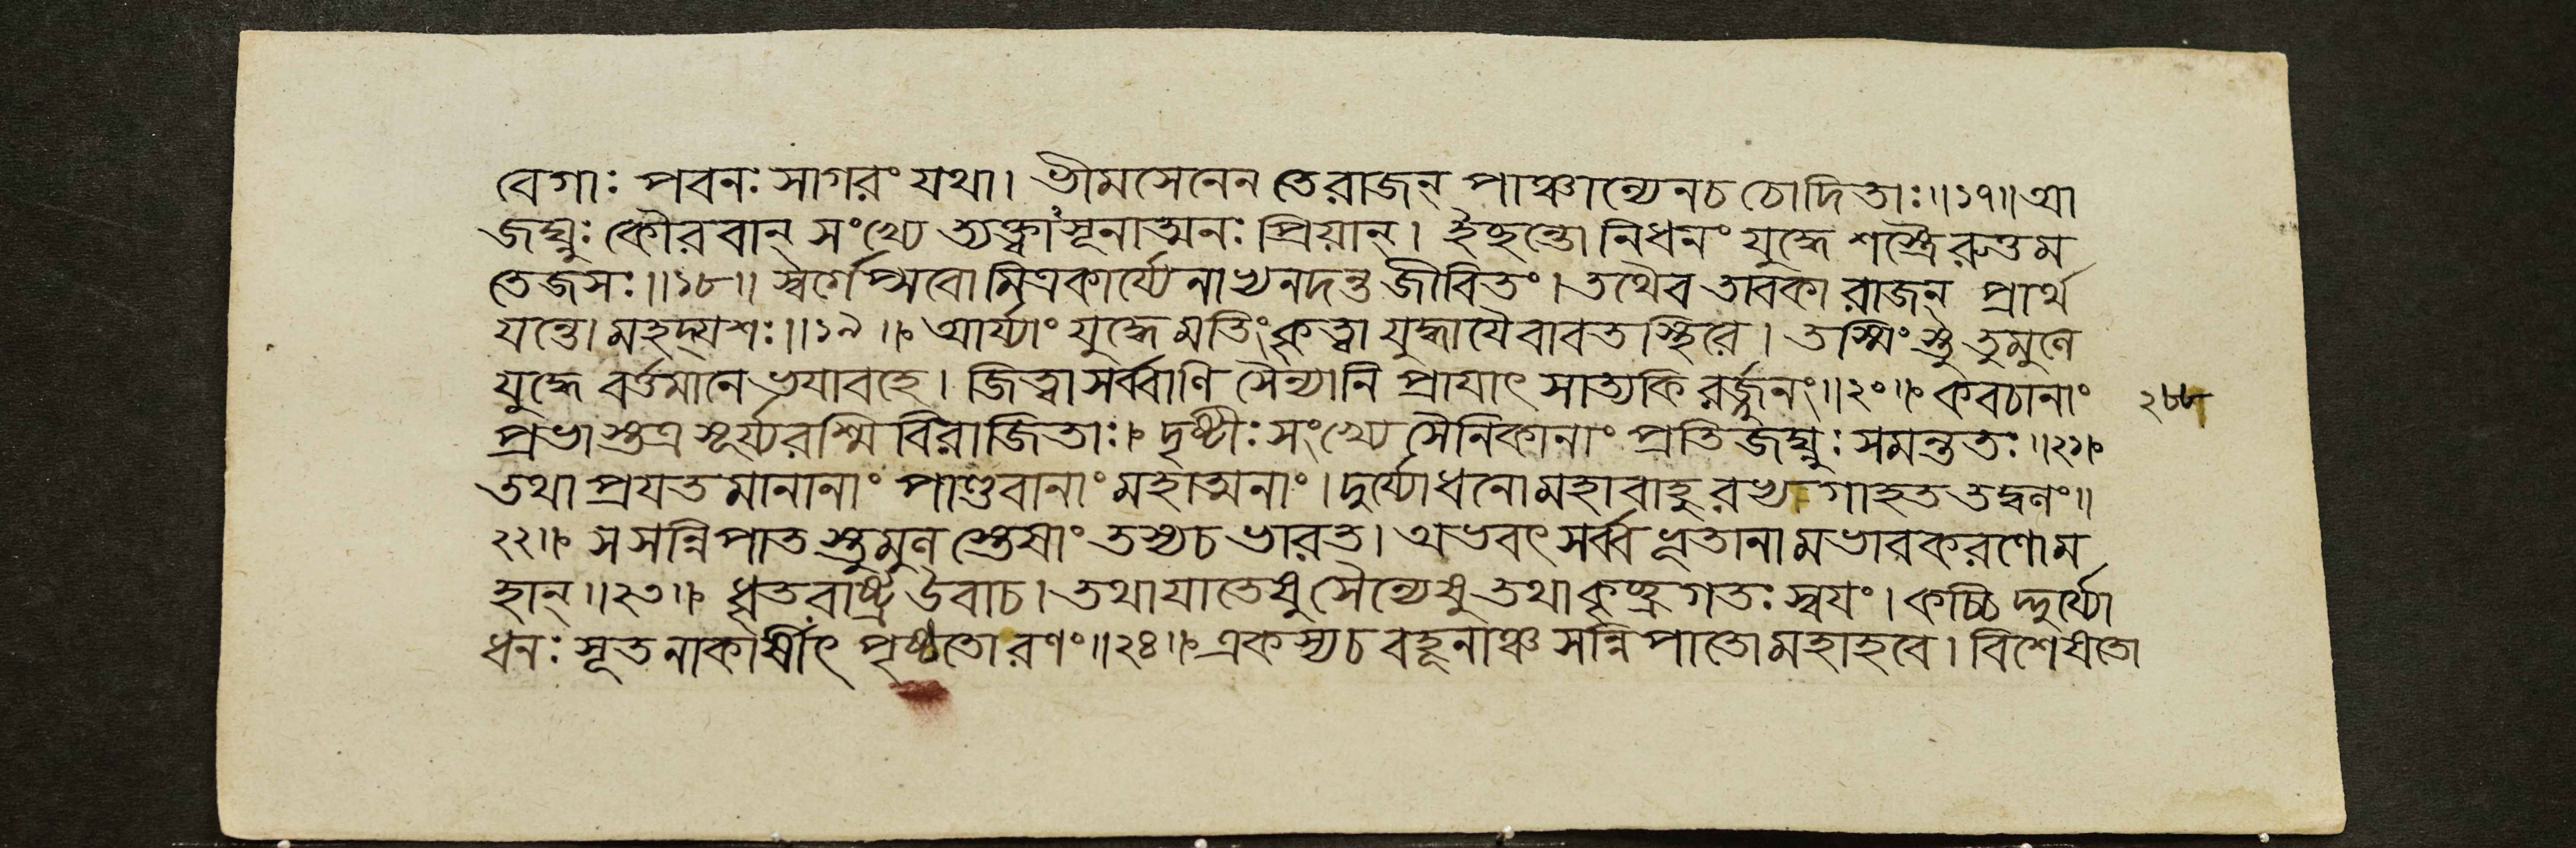 বেগাঃ পবনঃ সাগরং যথা। ভীমসেনেন তে রাজন্ পাঞ্চাল্যেন চ চোদিতাঃ॥১৭॥ আ
জঘ্নুঃ কৌরবান্ সংখ্যে ত্যক্ত্বাসূনাত্মনঃ প্রিয়ান্। ইচ্ছন্তো নিধনং যুদ্ধে শস্ত্রৈরুত্তম
তেজসঃ॥১৮॥ স্বর্গেপ্সবো মিত্রকার্য্যে নাভ্যনন্দন্ত জীবিতং। তথৈব তাবকা রাজন্ প্রার্থ
যন্তো মহদ্যশঃ॥১৯॥ আর্য্যাং যুদ্ধে মতিং কৃত্বা যুদ্ধায়ৈবাবতস্থিরে। তস্মিংস্তু তুমুলে
যুদ্ধে বর্ত্তমানে ভয়াবহে। জিত্বা সর্ব্বাণি সৈন্যানি প্রায়াৎ সাত্যকিরর্জ্জুনং॥২০॥ কবচানাং
২৮৮
প্রভাস্তত্র সূর্য্যরশ্মি বিরাজিতাঃ। দৃষ্টীঃ সংখ্যে সৈনিকানাং প্রতিজঘ্নুঃ সমন্ততঃ॥২১॥
তথা প্রযতমানানাং পাণ্ডবানাং মহাত্মনাং। দুর্য্যোধনো মহাবাহুরব্যগাহত তদ্বলং॥
২২॥ স সন্নিপাতস্তুমুলস্তেষাং তস্য চ ভারত। অভবৎ সর্ব্বভূতানামভারকরণো ম
হান্॥২৩॥ ধৃতরাষ্ট্র উবাচ। তথা যাতেষু সৈন্যেষু তথা কৃচ্ছ্রগতঃ স্বয়ং। কচ্চিদ্দুর্য্যো
ধনঃ সূত নাকার্ষীৎ পৃষ্ঠতো রণং॥২৪॥ একস্য চ বহূনাঞ্চ সন্নিপাতো মহাহবে। বিশেষতো